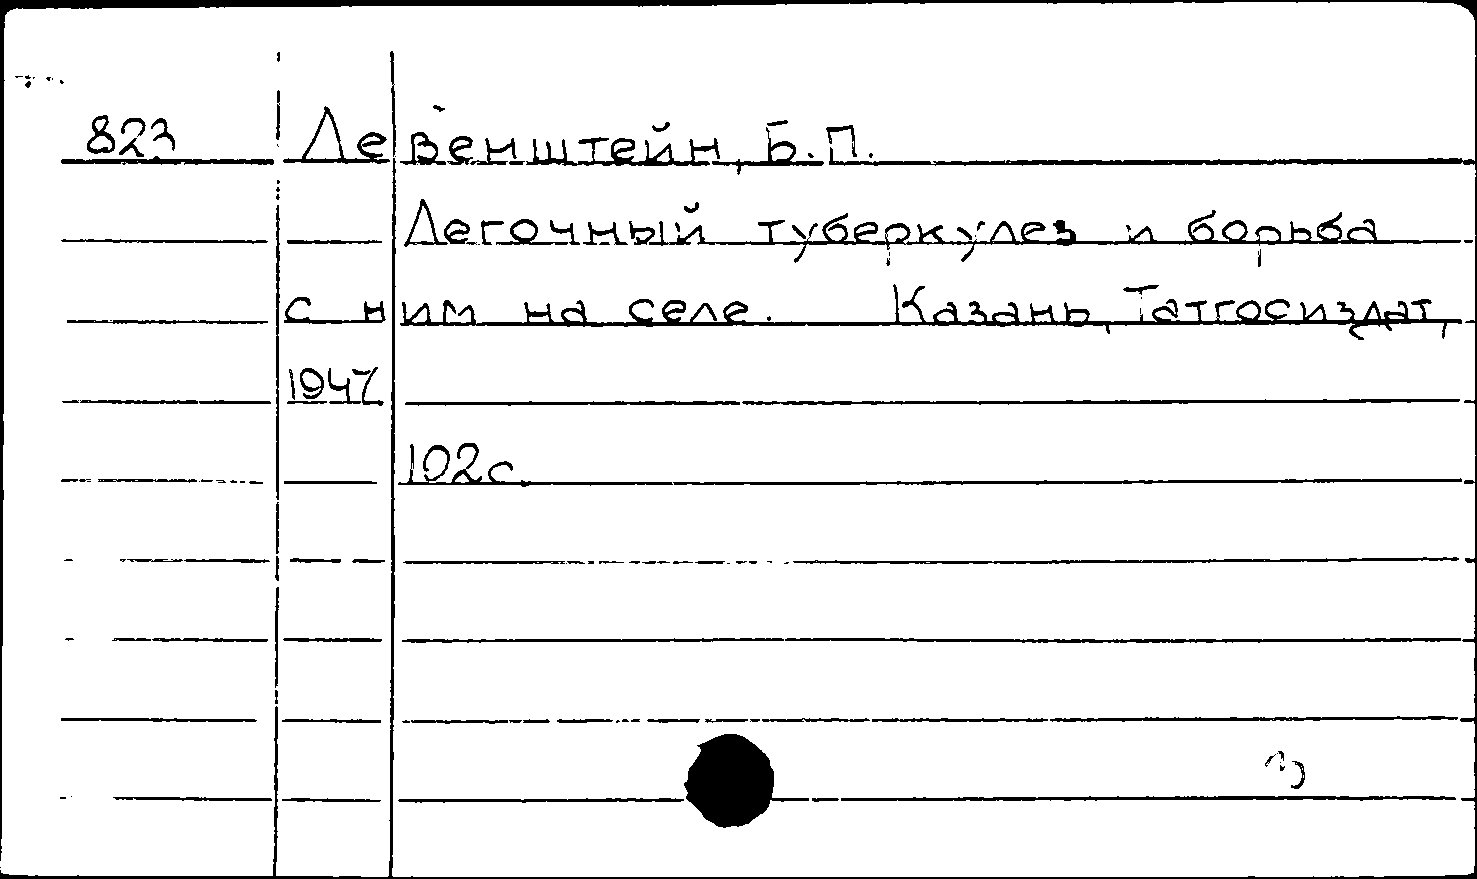 823 Левенштейн, Б.П.
Легочный туберкулез и борьба
с ним на селе. Казань, Татгосиздат,
1947
102с.